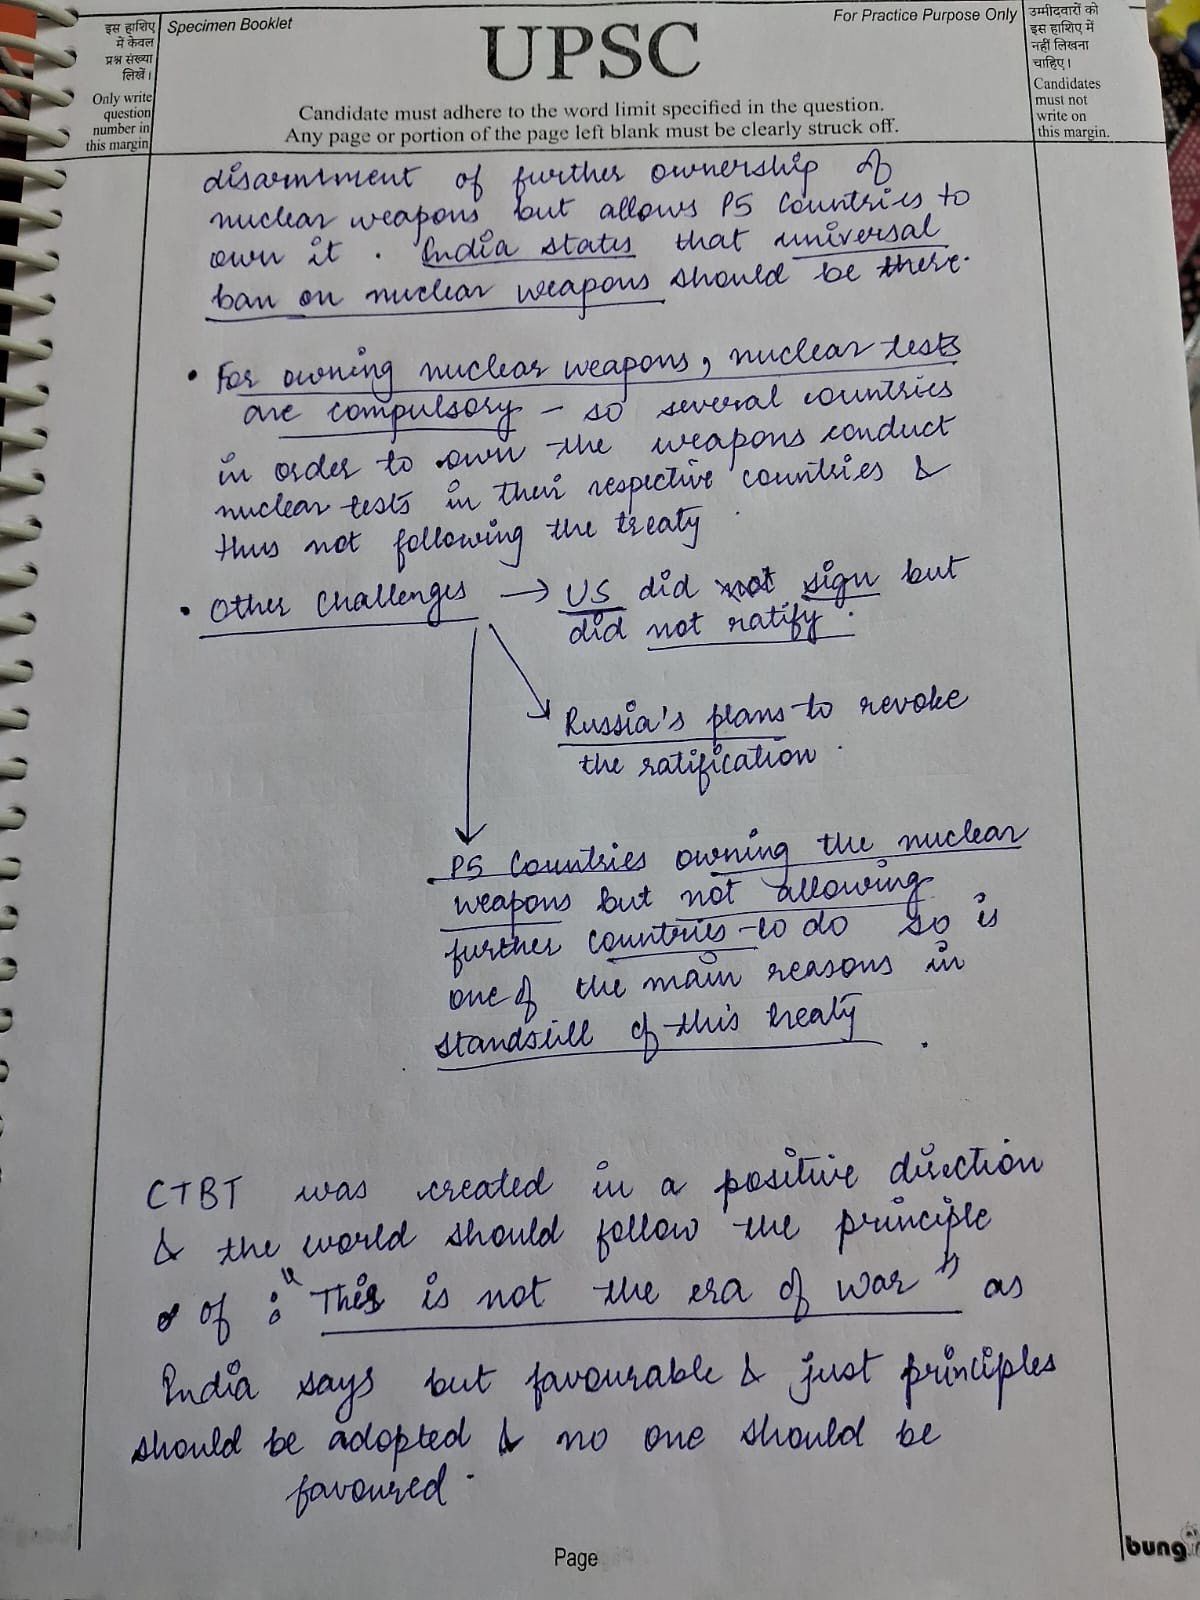 इस हाशिए
में केवल
प्रश्न संख्या
लिखें।
Only write
question
number in
this margin
Specimen Booklet
UPSC
For Practice Purpose Only
उम्मीदवारों को
इस हाशिए में
नहीं लिखना
चाहिए।
Candidates
must not
write on
this margin.
Candidate must adhere to the word limit specified in the question.
Any page or portion of the page left blank must be clearly struck off.
disarmment of further ownership of
nuclear weapons but allows P5 Countries to
own it . India states that universal
ban on nuclear weapons should be there.
• For owning nuclear weapons, nuclear tests
are compulsory – so several countries
in order to own the weapons conduct
nuclear tests in their respective countries &
thus not following the treaty.
• Other Challenges → US did not sign but
did not ratify.
Russia's plans to revoke
the ratification.
P5 Countries owning the nuclear
weapons but not allowing
further countries to do so is
one of the main reasons in
standstill of this treaty.
CTBT was created in a positive direction
& the world should follow the principle
of : "This is not the era of war" as
India says but favourable & just principles
should be adopted & no one should be
favoured.
Page
bung